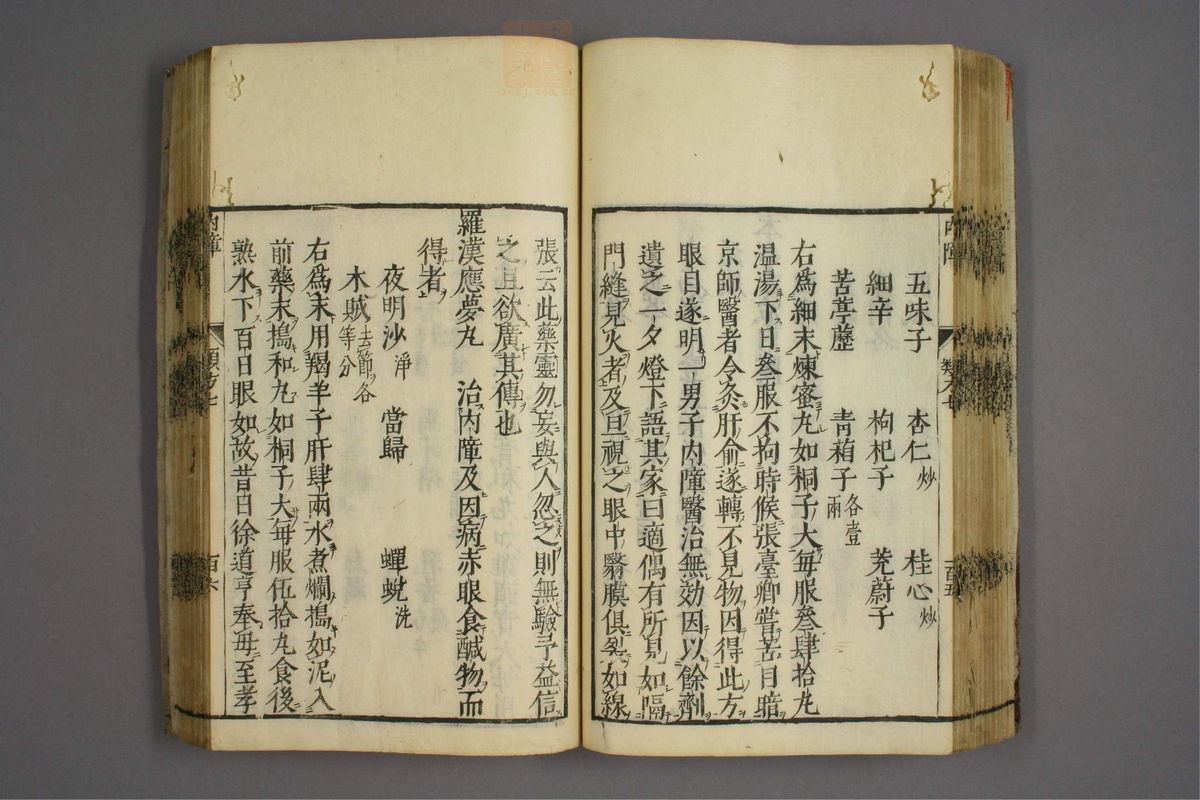 五味子 杏仁炒 桂心炒
細辛 枸杞子 茺蔚子
苦葶藶 青葙子各壹兩
右爲細末煉蜜丸如桐子大每服叁肆拾丸
温湯下日叁服不拘時候張臺卿嘗苦目暗
京師醫者令灸肝俞遂轉不見物因得此方
眼目遂明一男子内障醫治無効因以餘劑
遺之一夕燈下語其家曰適偶有所見如隔
門縫見火者及旦視之眼中翳膜俱裂如線
張云此藥靈勿妄與人忽之則無驗予益信
之且欲廣其傳也
羅漢應夢丸 治内障及因病赤眼食鹹物而
得者
夜明沙淨 當歸 蟬蛻洗
木賊去節各等分
右爲末用羯羊子肝肆兩水煮爛搗如泥入
前藥末搗和丸如桐子大每服伍拾丸食後
熟水下百日眼如故昔日徐道亨奉母至孝
内障 類方七 百六